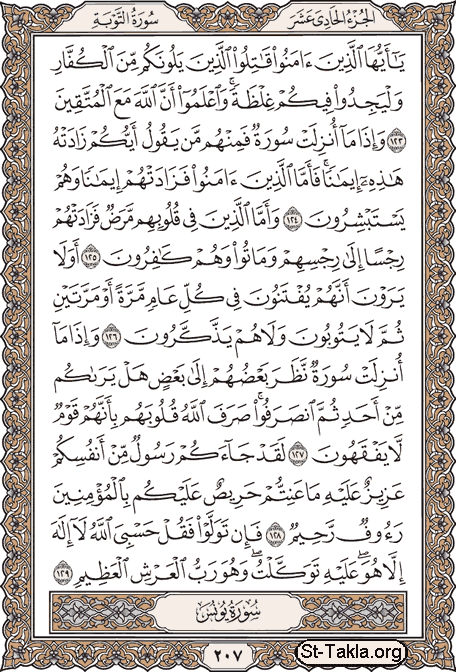 سُورَةُ التَّوْبَةِ الجُزْءُ الحَادِى عَشَرَ
يَٰٓأَيُّهَا ٱلَّذِينَ ءَامَنُوا۟ قَٰتِلُوا۟ ٱلَّذِينَ يَلُونَكُم مِّنَ ٱلْكُفَّارِ
وَلْيَجِدُوا۟ فِيكُمْ غِلْظَةً ۚ وَٱعْلَمُوٓا۟ أَنَّ ٱللَّهَ مَعَ ٱلْمُتَّقِينَ
١٢٣ وَإِذَا مَآ أُنزِلَتْ سُورَةٌ فَمِنْهُم مَّن يَقُولُ أَيُّكُمْ زَادَتْهُ
هَٰذِهِۦٓ إِيمَٰنًا ۚ فَأَمَّا ٱلَّذِينَ ءَامَنُوا۟ فَزَادَتْهُمْ إِيمَٰنًا وَهُمْ
يَسْتَبْشِرُونَ ١٢٤ وَأَمَّا ٱلَّذِينَ فِى قُلُوبِهِم مَّرَضٌ فَزَادَتْهُمْ
رِجْسًا إِلَىٰ رِجْسِهِمْ وَمَاتُوا۟ وَهُمْ كَٰفِرُونَ ١٢٥ أَوَلَا
يَرَوْنَ أَنَّهُمْ يُفْتَنُونَ فِى كُلِّ عَامٍ مَّرَّةً أَوْ مَرَّتَيْنِ
ثُمَّ لَا يَتُوبُونَ وَلَا هُمْ يَذَّكَّرُونَ ١٢٦ وَإِذَا مَآ
أُنزِلَتْ سُورَةٌ نَّظَرَ بَعْضُهُمْ إِلَىٰ بَعْضٍ هَلْ يَرَىٰكُم
مِّنْ أَحَدٍ ثُمَّ ٱنصَرَفُوا۟ ۚ صَرَفَ ٱللَّهُ قُلُوبَهُم بِأَنَّهُمْ قَوْمٌ
لَّا يَفْقَهُونَ ١٢٧ لَقَدْ جَآءَكُمْ رَسُولٌ مِّنْ أَنفُسِكُمْ
عَزِيزٌ عَلَيْهِ مَا عَنِتُّمْ حَرِيصٌ عَلَيْكُم بِٱلْمُؤْمِنِينَ
رَءُوفٌ رَّحِيمٌ ١٢٨ فَإِن تَوَلَّوْا۟ فَقُلْ حَسْبِىَ ٱللَّهُ لَآ إِلَٰهَ
إِلَّا هُوَ ۖ عَلَيْهِ تَوَكَّلْتُ ۖ وَهُوَ رَبُّ ٱلْعَرْشِ ٱلْعَظِيمِ ١٢٩
سُورَةُ يُونُسَ
٢٠٧
St-Takla.org